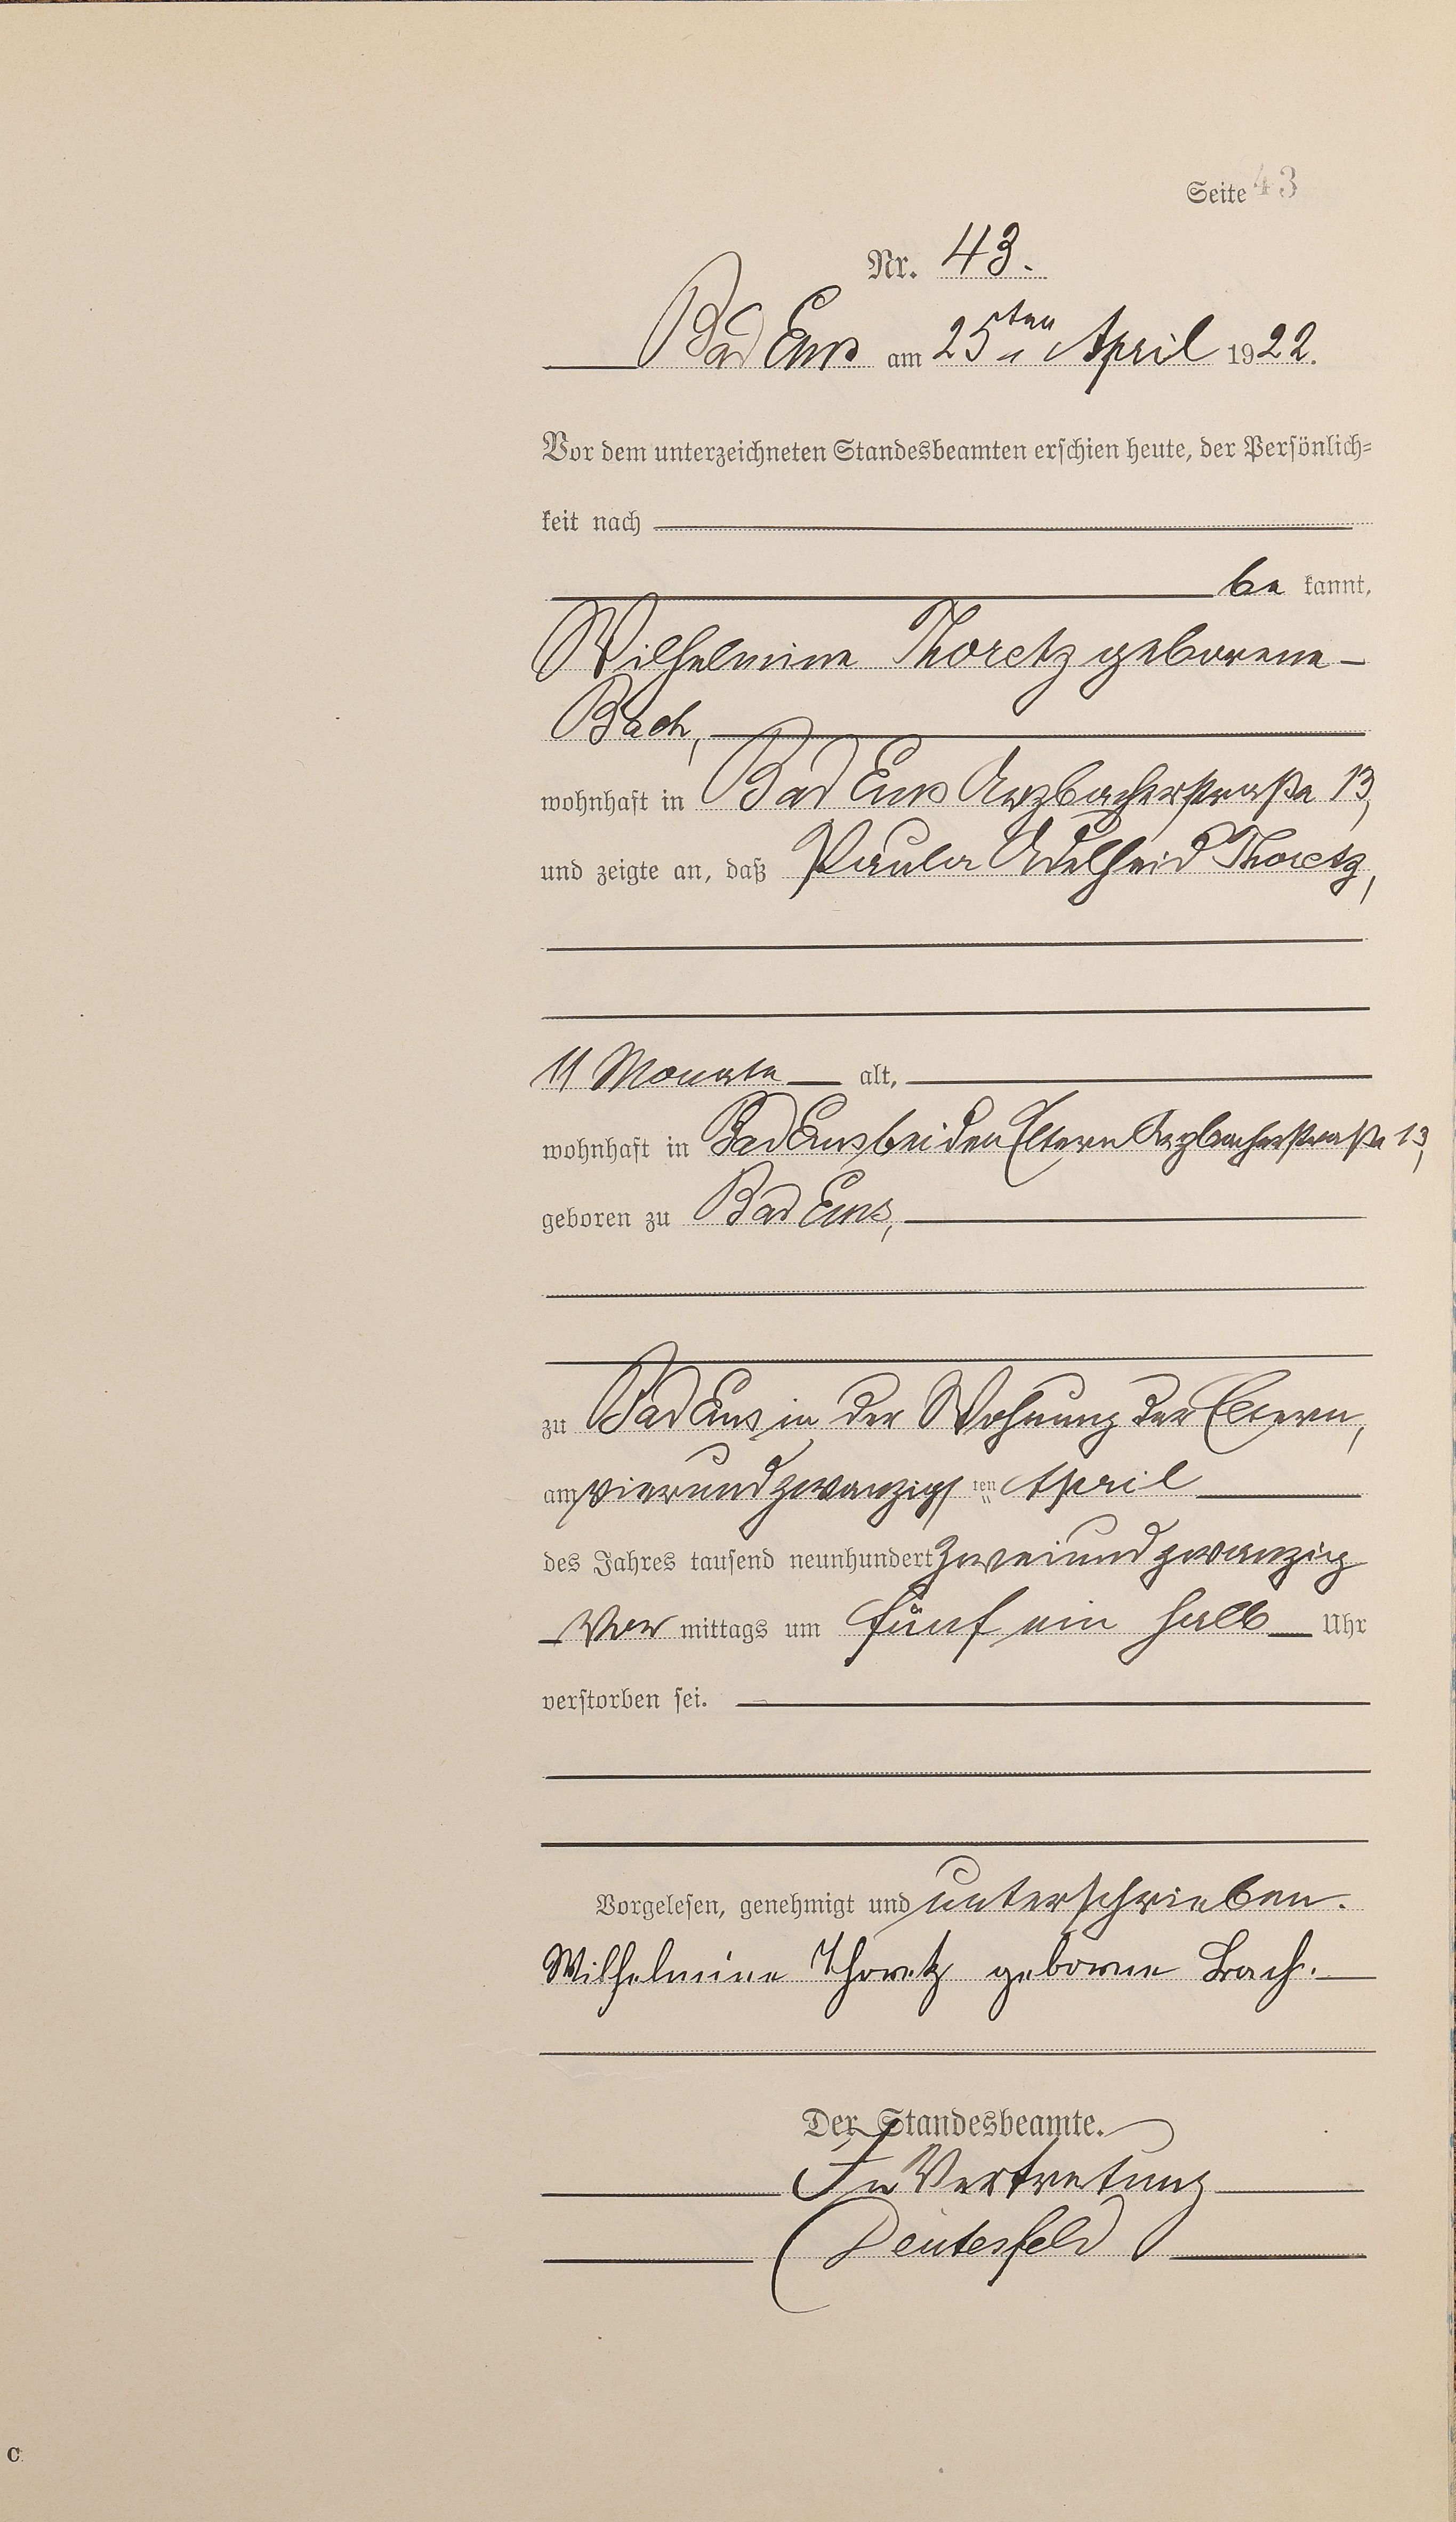 Seite 43
Nr. 43.
Bad Ems am 25ten April 1922.
Vor dem unterzeichneten Standesbeamten erschien heute, der Persönlich-
keit nach
be kannt,
Wilhelmine Thoretz geborene
Bach,
wohnhaft in Bad Ems Arzbacherstraße 13,
und zeigte an, daß Paula Adelheid Thoretz,
11 Monate alt,
wohnhaft in Bad Ems bei den Eltern Arzbacherstraße 13,
geboren zu Bad Ems,
zu Bad Ems in der Wohnung der Eltern,
am vierundzwanzigs ten April
des Jahres tausend neunhundert zweiundzwanzig
Vor mittags um fünf ein halb Uhr
verstorben sei.
Vorgelesen, genehmigt und unterschrieben.
Wilhelmine Thoretz geborne Bach.
Der Standesbeamte.
In Vertretung
Deutesfeld
C